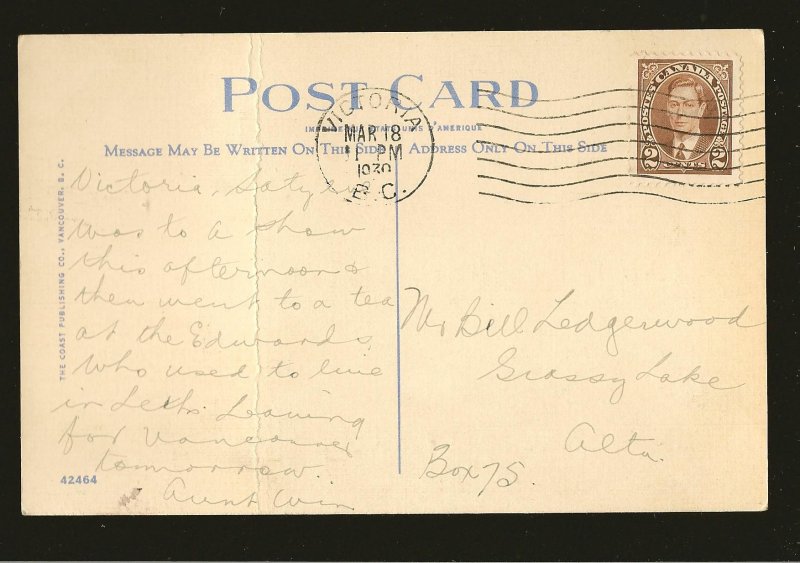 POST CARD
IMPRIME AUX ETATS UNIS D'AMERIQUE
MESSAGE MAY BE WRITTEN ON THIS SIDE
ADDRESS ONLY ON THIS SIDE
VICTORIA
MAR 18
PM
B.C.
POSTES CANADA POSTAGE
2 CENTS 2
THE COAST PUBLISHING CO., VANCOUVER, B. C.
Victoria,
Was to a show
this afternoon &
then went to a tea
at the Edwards,
who used to live
in Leth. Leaving
for Vancouver
tomorrow.
Aunt Win
42464
Mr Bill Ledgerwood
Grassy Lake
Alta.
Box 75.